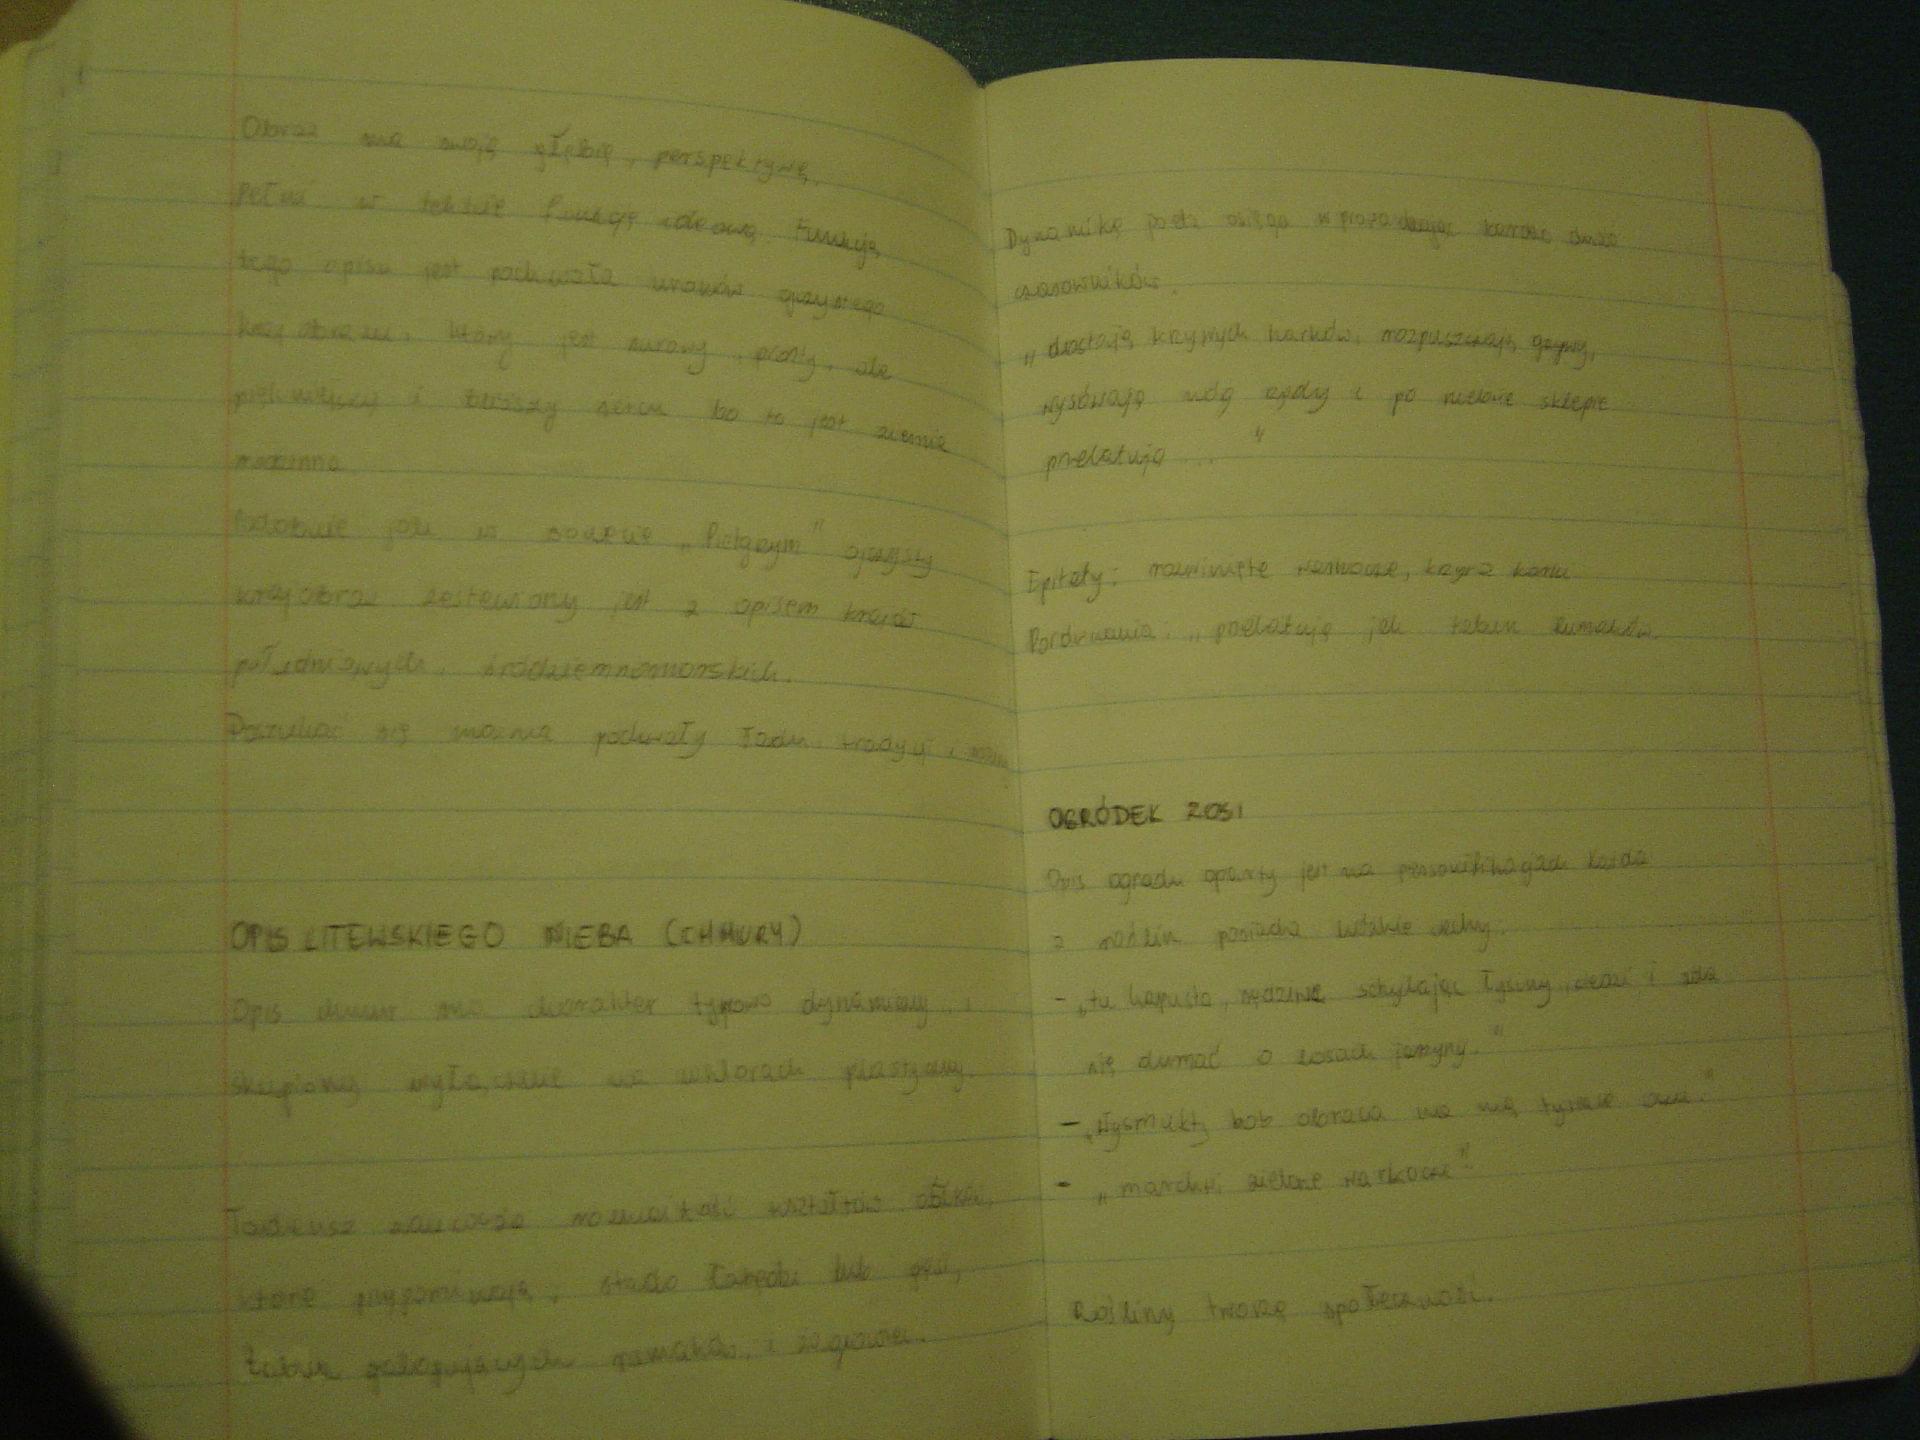 Obraz ma swoją głębię, perspektywę.
Pełni w tekście funkcję ideową. Funkcją
tego opisu jest pochwała uroków ojczystego
krajobrazu, który jest surowy, prosty, ale
piękniejszy i bliższy sercu bo to jest ziemia
rodzinna
Podobnie jak w sonecie „Pielgrzym" ojczysty
krajobraz zestawiony jest z opisem krajów
południowych, śródziemnomorskich.
Doszukać się można pochwały ładu, tradycji i
OPIS LITEWSKIEGO NIEBA (CHMURY)
Opis chmur ma charakter typowo dynamiczny i
skupiony wyłącznie na walorach plastyczny
Tadeusz zauważa rozmaitość kształtów obłoków,
które przypominają, stado łabędzi lub gęsi,
tabun galopujących rumaków, i żaglowiec.
Dynamikę poeta osiąga wprowadzając bardzo dużo
czasowników.
„dostają krzywych karków, rozpuszczają grzywy,
wysówają nóg rzędy i po niebie sklepie
przelatują ..."
Epitety: rozwinięte warkocze, krzyż karku
Porównania: „przelatują jak tabun rumaków.
OGRÓDEK ZOSI
Opis ogrodu oparty jest na personifikacjach każda
z roślin posiada ludzkie cechy:
- „tu kapusta, sędziwe schylając łysiny, siedzi i zda
się dumać o losach jarzyny."
- „Wysmukły bob obraca na nią tysiące oczu."
- „marchwi zielone warkocze".
Rośliny tworzą społeczność.